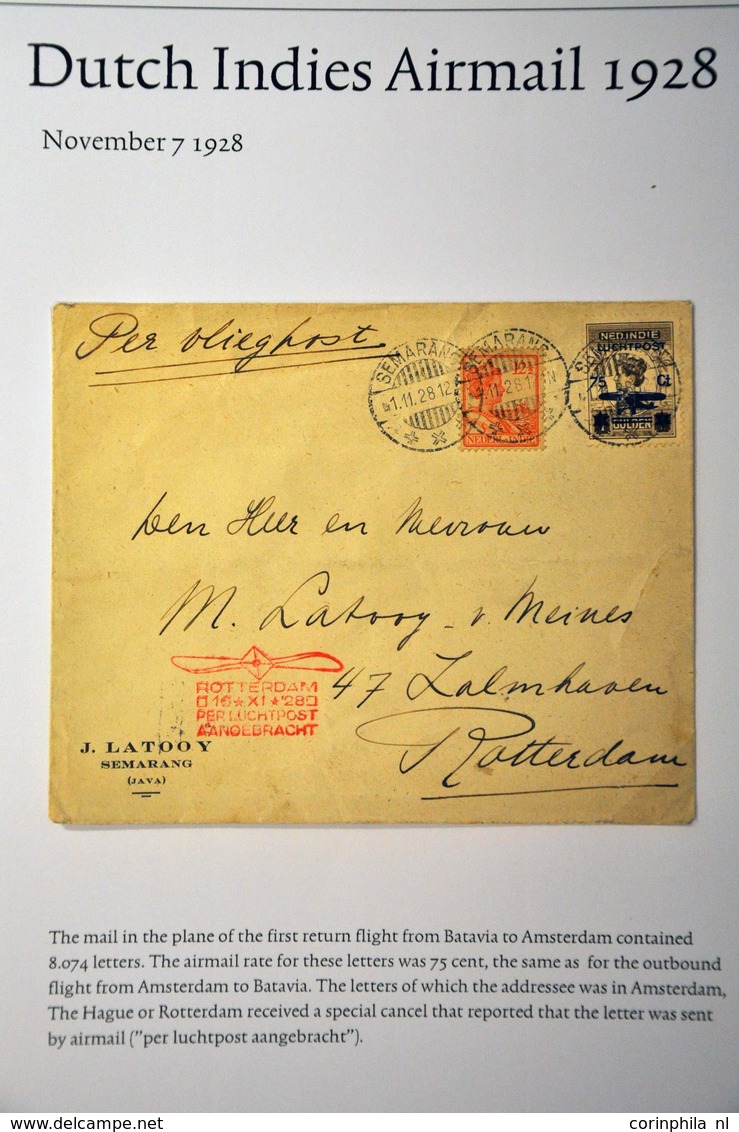 Dutch Indies Airmail 1928
November 7 1928
Per vliegpost
SEMARANG
1.11.28.12
SEMARANG
1.11.28.1 N
12½
NEDERL.INDIË
NED.INDIË
LUCHTPOST
75 Ct
GULDEN
Den Heer en Mevrouw
M. Latooy - v. Meines
47 Zalmhaven
Rotterdam
ROTTERDAM
16 ★ XI ★ '28
PER LUCHTPOST
AANGEBRACHT
J. LATOOY
SEMARANG
(JAVA)
The mail in the plane of the first return flight from Batavia to Amsterdam contained
8.074 letters. The airmail rate for these letters was 75 cent, the same as for the outbound
flight from Amsterdam to Batavia. The letters of which the addressee was in Amsterdam,
The Hague or Rotterdam received a special cancel that reported that the letter was sent
by airmail ("per luchtpost aangebracht").
delcampe.net
corinphila nl